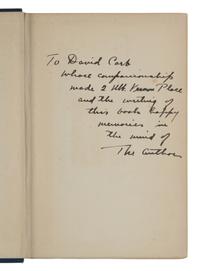 To David Cark
whose companionship
made 2 West Kennon Place
and the writing of
this book happy
memories in
the mind of
The Author